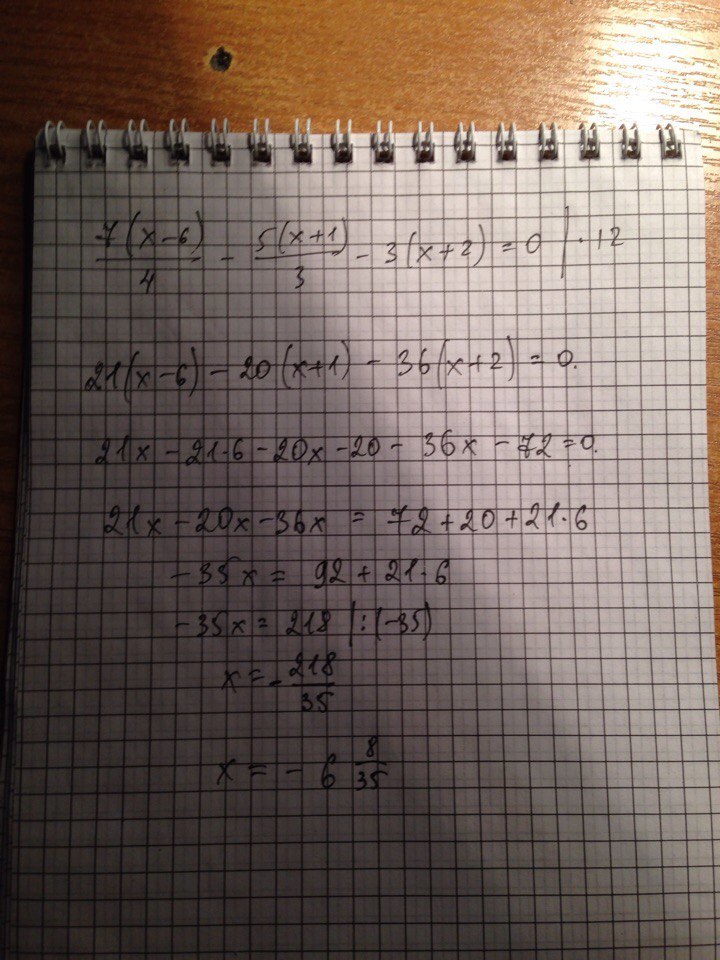 7(x-6)/4 - 5(x+1)/3 - 3(x+2) = 0 | · 12
21(x-6) - 20(x+1) - 36(x+2) = 0.
21x - 21·6 - 20x - 20 - 36x - 72 = 0.
21x - 20x - 36x = 72 + 20 + 21·6
-35x = 92 + 21·6
-35x = 218 | : (-35)
x = - 218/35
x = - 6 8/35